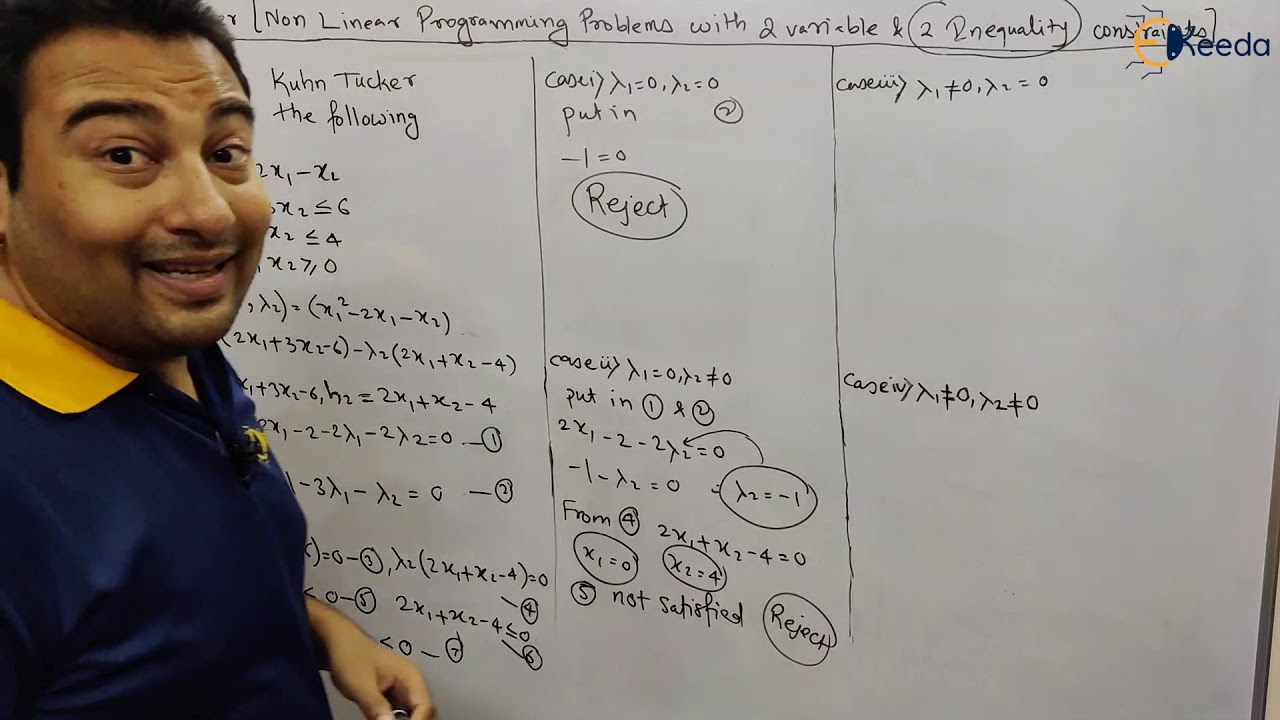 [Non Linear Programming Problems with 2 variable & (2 Inequality) constraints]
Keeda
Kuhn Tucker
the following
2x₁-x₂
3x₂≤6
x₂≤4
x₂≥0
,λ₂)=(x₁²-2x₁-x₂)
(2x₁+3x₂-6)-λ₂(2x₁+x₂-4)
x₁+3x₂-6, h₂=2x₁+x₂-4
2x₁-2-2λ₁-2λ₂=0 —①
1-3λ₁-λ₂=0 —②
)=0-③, λ₂(2x₁+x₂-4)=0
—④
<0-⑤ 2x₁+x₂-4≤0
—⑥
<0—⑦
case i> λ₁=0, λ₂=0
put in ②
-1=0
Reject
case ii> λ₁=0, λ₂≠0
put in ① & ②
2x₁-2-2λ₂=0
-1-λ₂=0 λ₂=-1
From ④ 2x₁+x₂-4=0
x₁=0 x₂=4
⑤ not satisfied Reject
case iii> λ₁≠0, λ₂=0
case iv> λ₁≠0, λ₂≠0